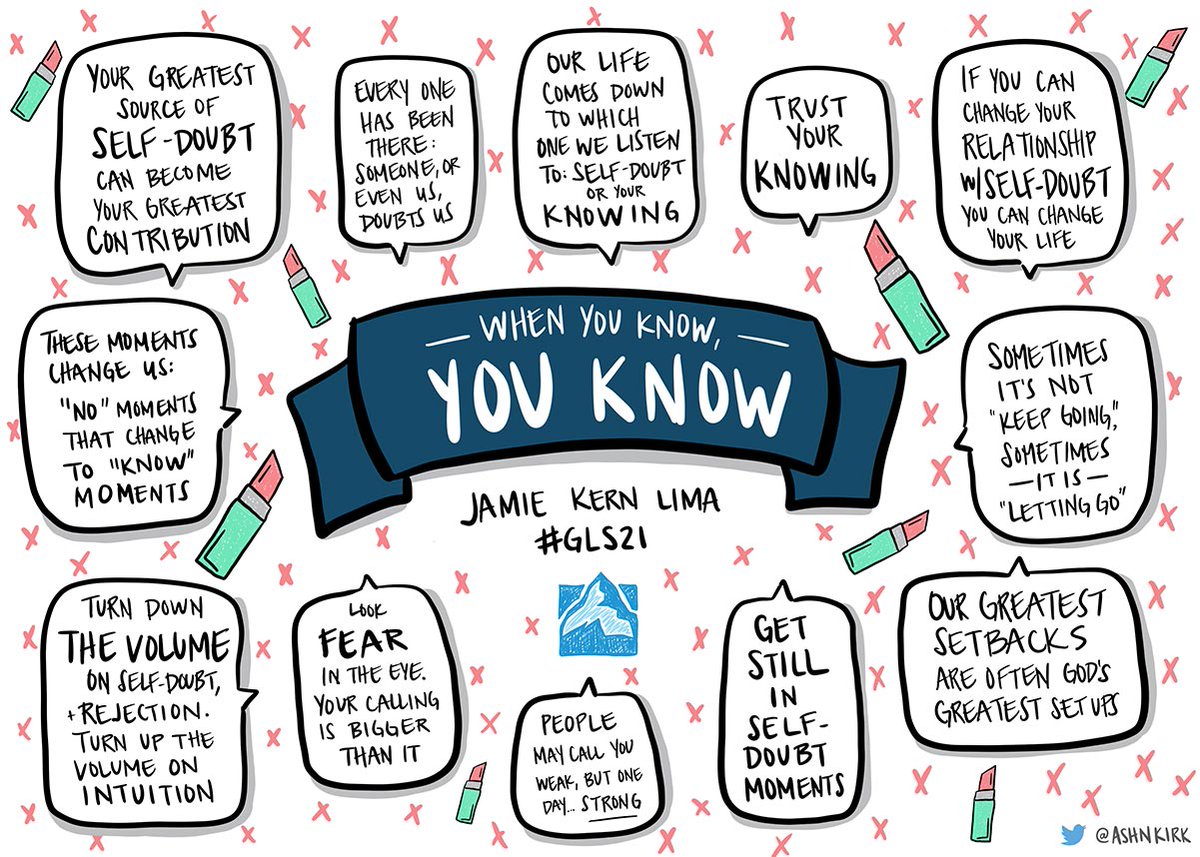 YOUR GREATEST
SOURCE OF
SELF-DOUBT
CAN BECOME
YOUR GREATEST
CONTRIBUTION
EVERY ONE
HAS BEEN
THERE:
SOMEONE, OR
EVEN US,
DOUBTS US
OUR LIFE
COMES DOWN
TO WHICH
ONE WE LISTEN
TO: SELF-DOUBT
OR YOUR
KNOWING
TRUST
YOUR
KNOWING
IF YOU CAN
CHANGE YOUR
RELATIONSHIP
W/SELF-DOUBT
YOU CAN CHANGE
YOUR LIFE
THESE MOMENTS
CHANGE US:
"NO" MOMENTS
THAT CHANGE
TO "KNOW"
MOMENTS
— WHEN YOU KNOW, —
YOU KNOW
JAMIE KERN LIMA
#GLS21
SOMETIMES
IT'S NOT
"KEEP GOING,"
SOMETIMES
— IT IS —
"LETTING GO"
TURN DOWN
THE VOLUME
ON SELF-DOUBT,
+ REJECTION.
TURN UP THE
VOLUME ON
INTUITION
LOOK
FEAR
IN THE EYE.
YOUR CALLING
IS BIGGER
THAN IT
PEOPLE
MAY CALL YOU
WEAK, BUT ONE
DAY... STRONG
GET
STILL
IN
SELF-
DOUBT
MOMENTS
OUR GREATEST
SETBACKS
ARE OFTEN GOD'S
GREATEST SET UPS
@ASHNKIRK